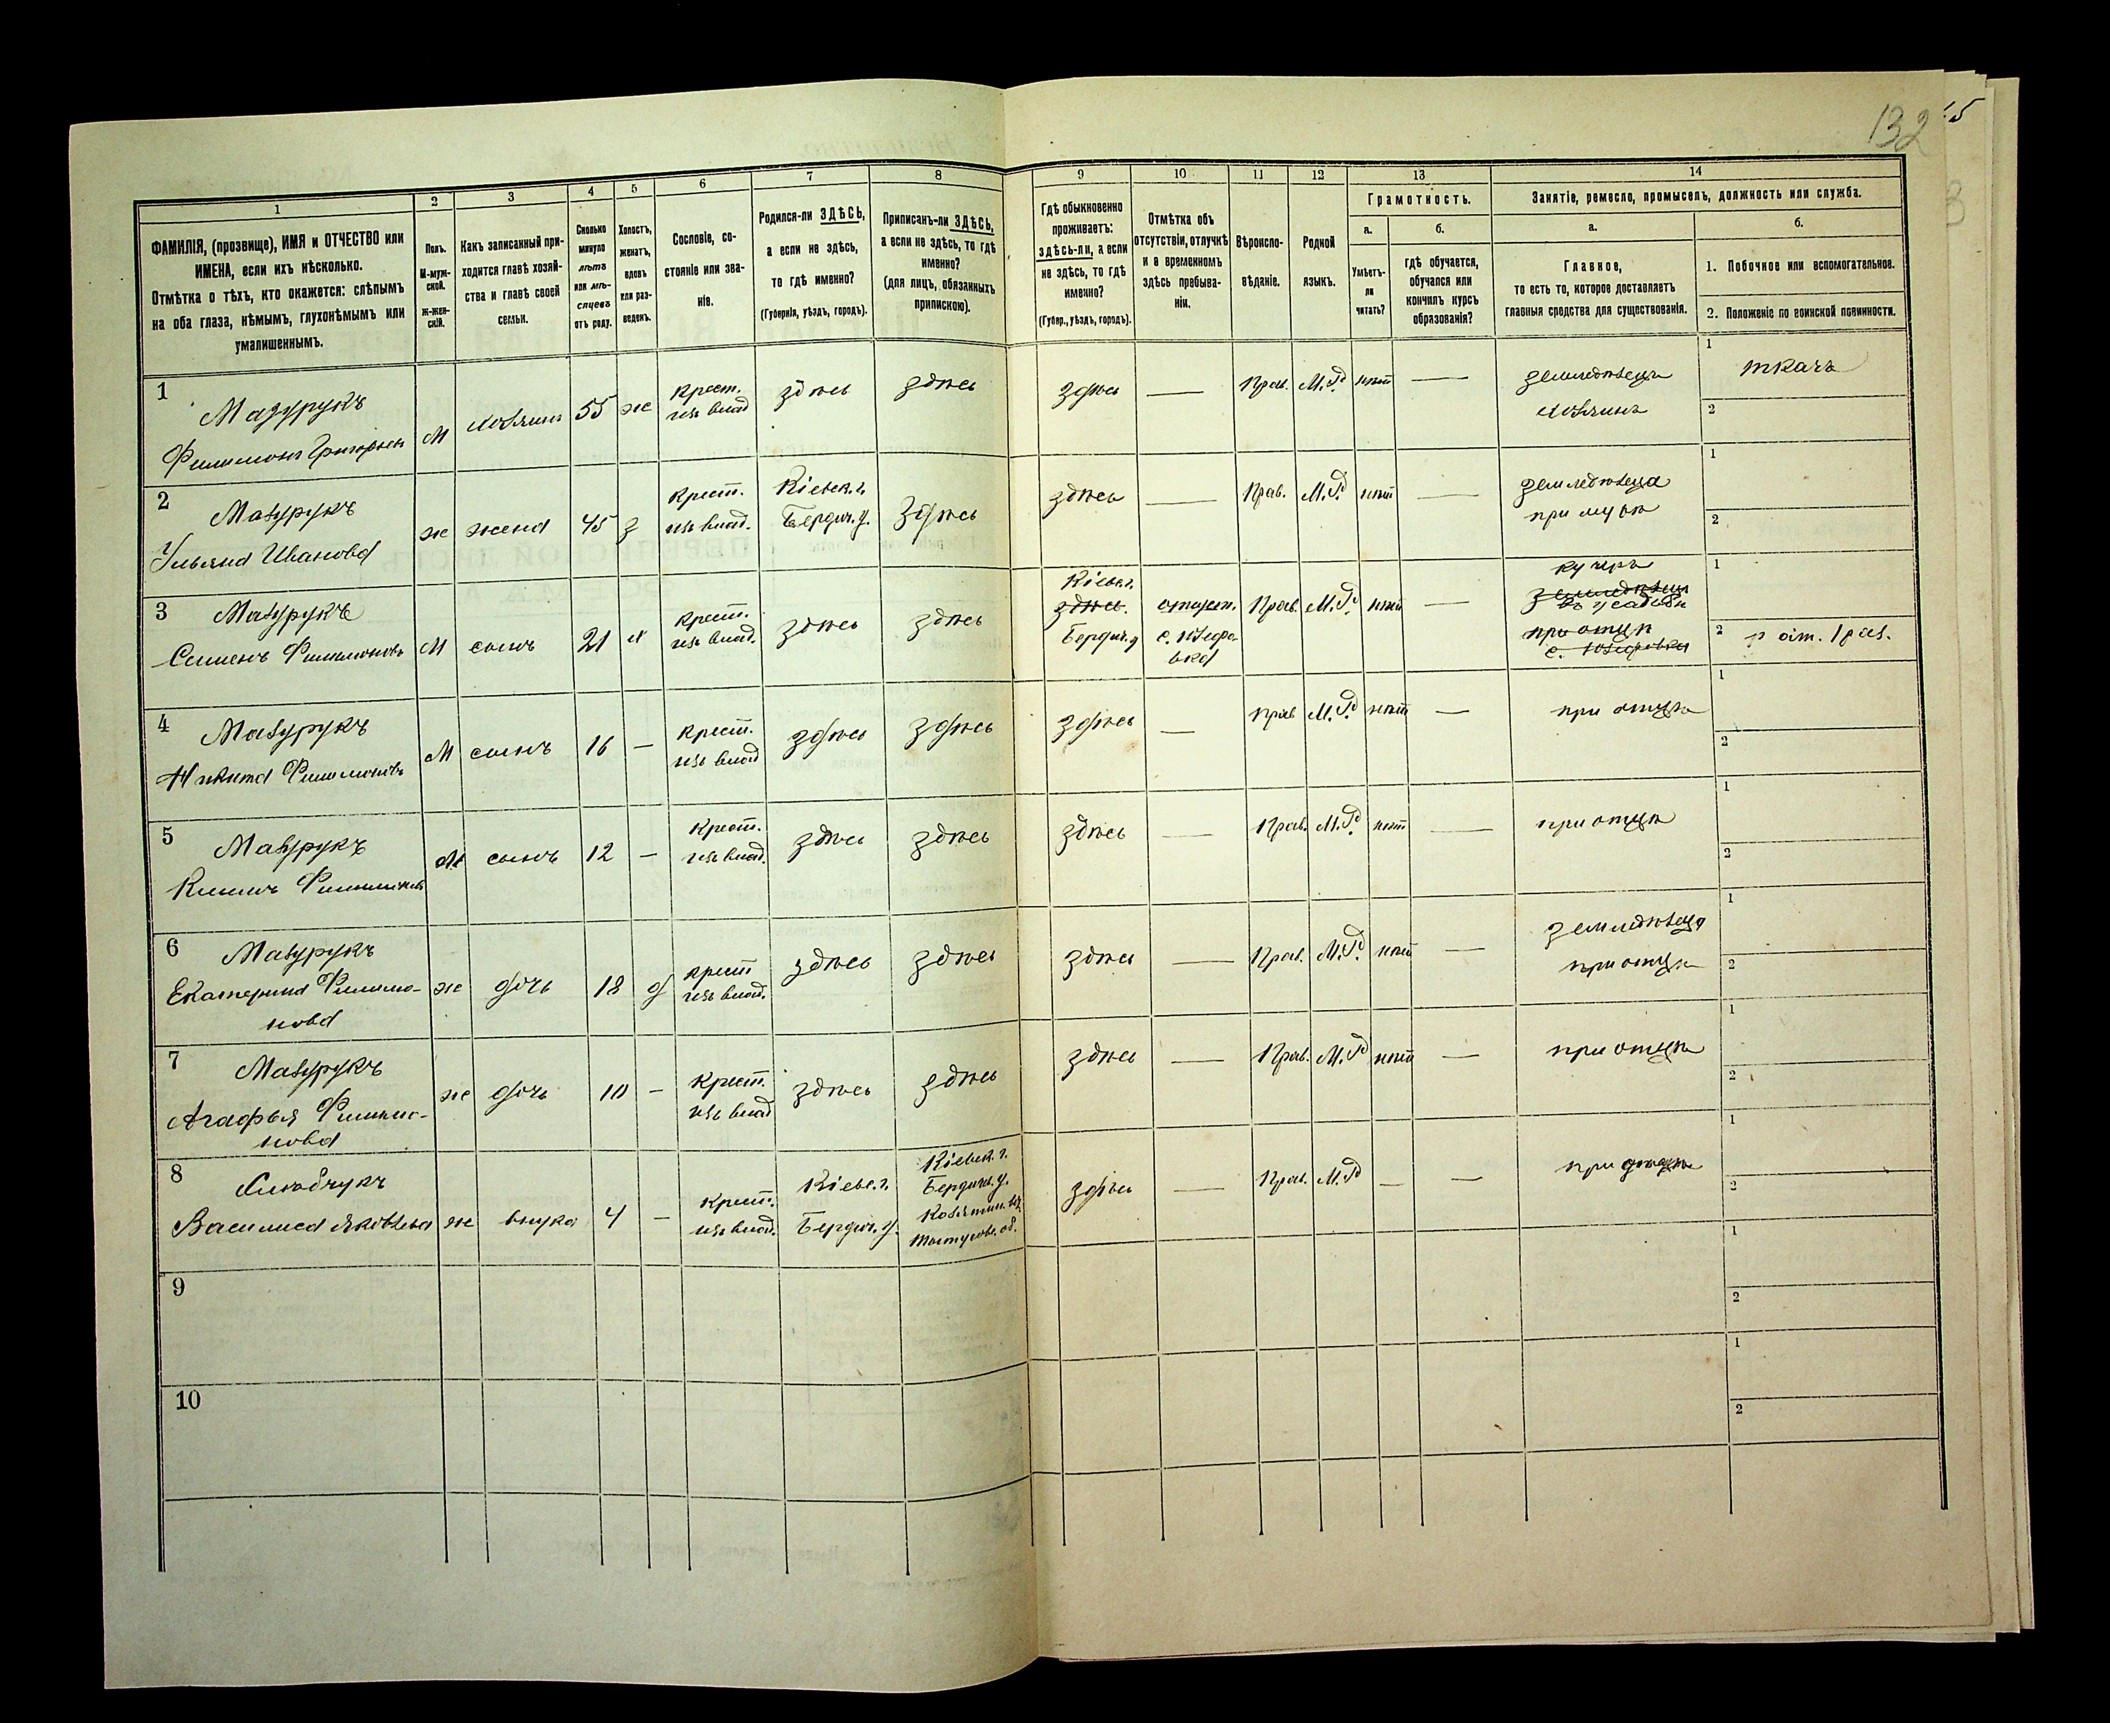 132
1
2
3
4
5
6
7
8
9
10
11
12
13
14
ФАМИЛІЯ, (прозвище), ИМЯ и ОТЧЕСТВО или
ИМЕНА, если ихъ нѣсколько.
Отмѣтка о тѣхъ, кто окажется: слѣпымъ
на оба глаза, нѣмымъ, глухонѣмымъ или
умалишеннымъ.
Полъ.
М-муж-
ской.
Ж-жен-
скій.
Какъ записанный при-
ходится главѣ хозяй-
ства и главѣ своей
семьи.
Сколько
минуло
лѣтъ
или мѣ-
сяцевъ
отъ роду.
Холостъ,
женатъ,
вдовъ
или раз-
веденъ.
Сословіе, со-
стояніе или зва-
ніе.
Родился-ли ЗДѢСЬ,
а если не здѣсь,
то гдѣ именно?
(Губернія, уѣздъ, городъ).
Приписанъ-ли ЗДѢСЬ,
а если не здѣсь, то гдѣ
именно?
(для лицъ, обязанныхъ
припискою).
Гдѣ обыкновенно
проживаетъ:
здѣсь-ли, а если
не здѣсь, то гдѣ
именно?
(Губер., уѣздъ, городъ).
Отмѣтка объ
отсутствіи, отлучкѣ
и о временномъ
здѣсь пребыва-
ніи.
Вѣроиспо-
вѣданіе.
Родной
языкъ.
Грамотность.
а.
Умѣетъ-
ли
читать?
б.
гдѣ обучается,
обучался или
кончилъ курсъ
образованія?
Занятіе, ремесло, промыселъ, должность или служба.
а.
Главное,
то есть то, которое доставляетъ
главныя средства для существованія.
б.
1. Побочное или вспомогательное.
2. Положеніе по воинской повинности.
1
Мазурукъ
Филимонъ Григорьевъ
М хозяинъ 55 ж
Крест.
изъ влад
здѣсь здѣсь здѣсь — Прав. М.Р. нѣтъ —
земледѣлецъ
хозяинъ
1 ткачъ
2
2
Мазурукъ
Ульяна Иванова
ж жена 45 з
Крест.
изъ влад.
Кіевск. г.
Бердич. у.
здѣсь здѣсь — Прав. М.Р. нѣтъ —
земледѣлца
при мужѣ
1
2
3
Мазурукъ
Семенъ Филимоновъ
М сынъ 21 х
крест.
изъ влад.
здѣсь здѣсь
Кіевс. г.
здѣсь.
Бердич. у
отсут.
Прав. М.Р. нѣтъ —
кучеръ
земледѣлецъ
въ усадьбѣ
при отцѣ
1
2
4
Мазурукъ
Никита Филимоновъ
М сынъ 16 —
Крест.
изъ влад
здѣсь здѣсь здѣсь — Прав М.Р. нѣтъ —
при отцѣ
1
2
5
Мазурукъ
Климъ Филимоновъ
М сынъ 12 —
Крест.
изъ влад.
здѣсь здѣсь здѣсь — Прав. М.Р. нѣтъ —
при отцѣ
1
2
6
Мазурукъ
Екатерина Филимо-
нова
ж дочь 18 д
крест
изъ влад.
здѣсь здѣсь здѣсь — Прав. М.Р. нѣтъ —
земледѣлца
при отцѣ
1
2
7
Мазурукъ
Агафья Филимо-
нова
ж дочь 10 —
Крест.
изъ влад
здѣсь здѣсь здѣсь — Прав. М.Р нѣтъ —
при отцѣ
1
2
8
Василиса Яковлева
ж внука 4 —
Крест.
изъ влад.
Кіевс. г.
Бердич. у.
Кіевск. г.
Бердичь. у.
здѣсь — Прав. М.Р — —
при дѣдѣ
1
2
9
1
2
10
1
2